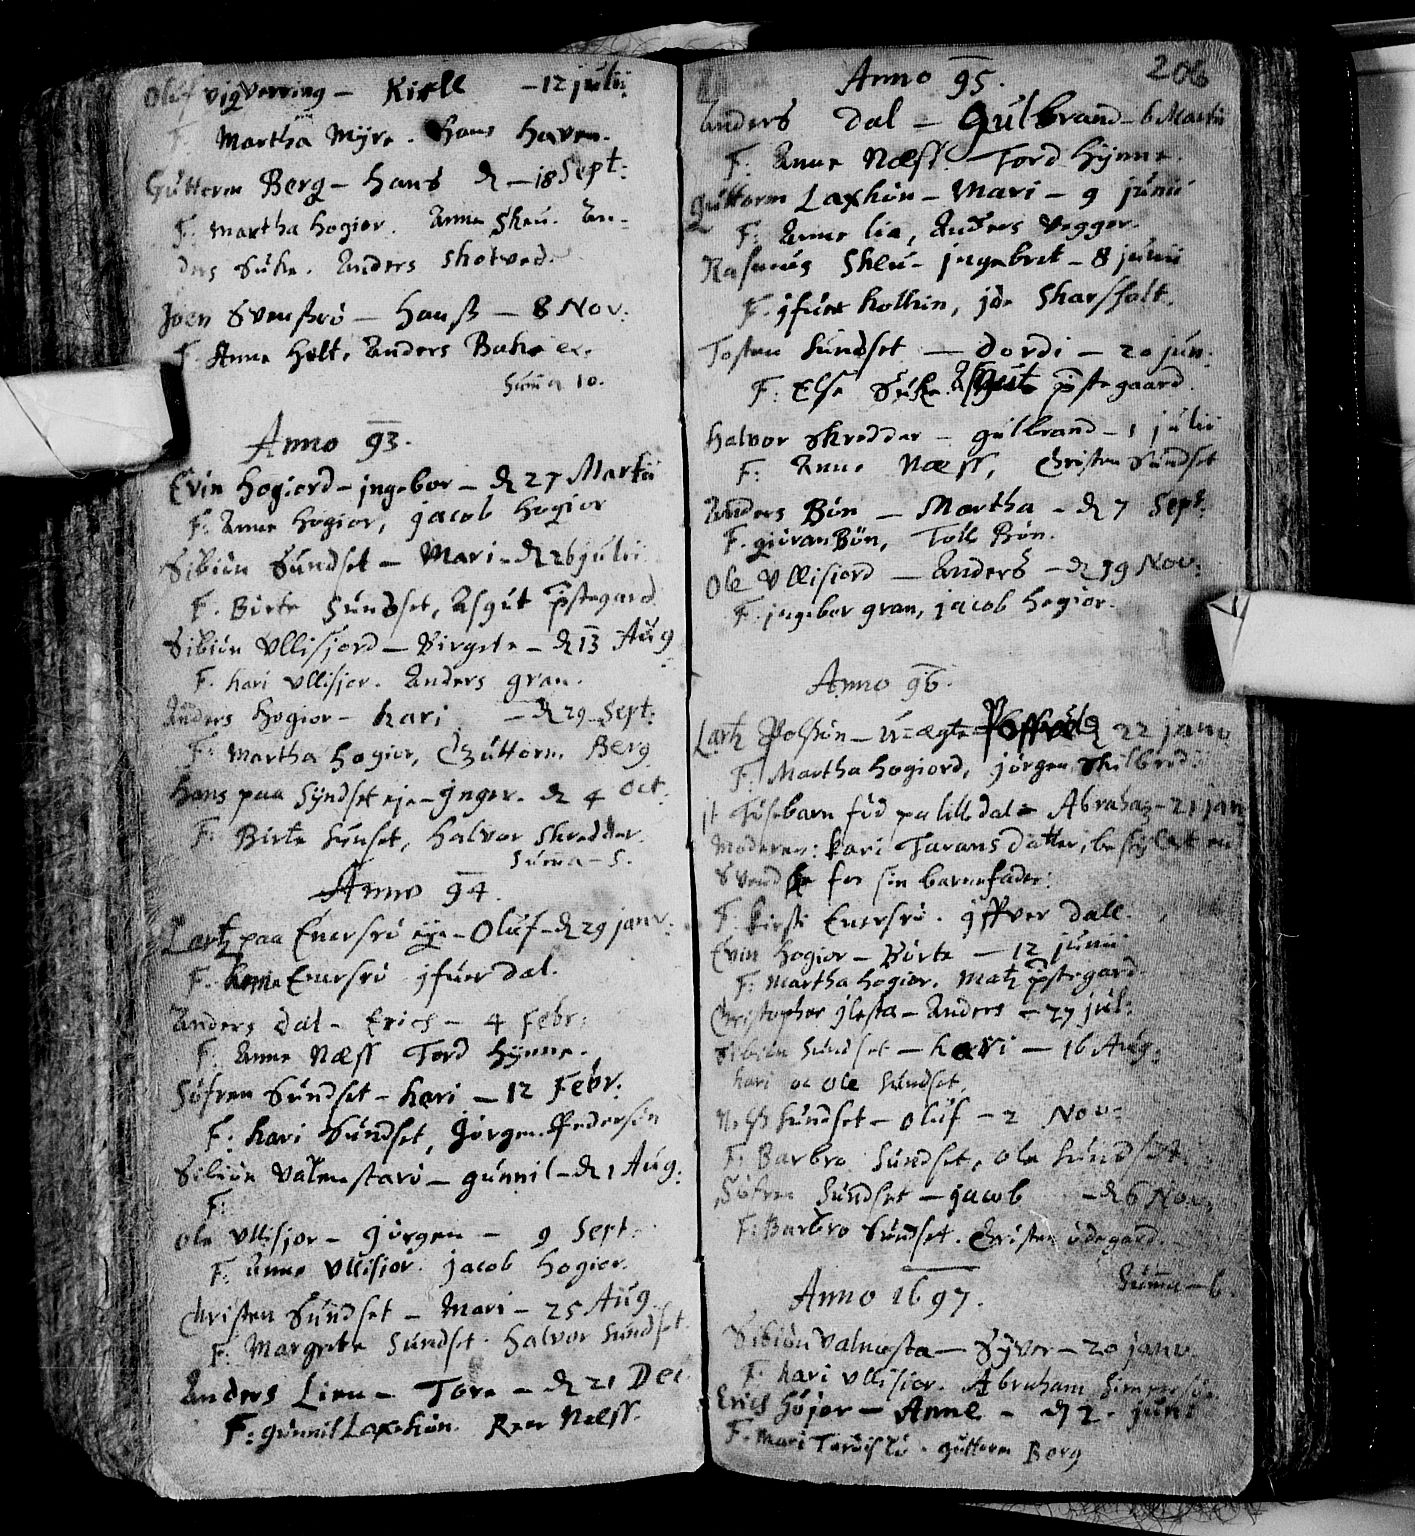 Oluf vigverring – Kield – 12 julii
F. Martha Myre. Hans Haven.
Guttorm Berg – Hans d – 18 Sept:
F: Martha Hogior. Anne Skeu. An-
ders Suke. Anders Skotved.
Joen Svenssrö – Hanss – 8 Nov:
F. Anne Holt, Anders Bakr ec.
Suma 10.
Anno 93.
Evin Hogiord – jngebor – d 27 Martii
F: Anne Hogior, jacob Hogior
Sibiön Sundset – Mari – d 26 julii
F. Birte Sundset, Asgut pstegard
Sibiön Ullisjord – Birgete – d 13 Aug
F. Kari Ullisjor. Anders gran.
Anders Hogior – Kari – d 29 Sept:
F: Martha Hogior, Guttorm Berg
Hans paa Syndset eje – Jnger. d 4 Oct:
F: Birte Synset, Halvor Skredder.
Suma – 5.
Anno 94.
Lartz paa Enersrö eye – Oluf – d 29 janv:
F. Enersrö jfuer dal.
Anders dal – Erich – 4 Febr:
F: Anne Næss Tord Hynne.
Söfren Sundset – Kari – 12 Febr.
F: Kari Sundset, Jörgen Pedersön
Sibiön Valmestarö – gunnil – d 1 Aug:
F:
Ole Ullisjor – Jörgen – 9 Sept:
F: Anne Ullisior. jacob Hogior.
Christen Sundset – Mari – 25 Aug
F: Margrete Sundset. Halvor Sundset.
Anders Lien – Tore – d 21 Dec
F: gunnil Laxekön. Reer Nelss.
206
Anno 95.
Anders dal – Gulbrand – 6 Martii
F: Anne Næss. Tord Hynne.
guttorm Laxkön – Mari – 9 junii
F: Anne lie, Anders Vegger.
Rasmus Skeu – jngebret – 8 junii
F. jfuer Kolkin, jör Skarsholt.
Tosten Sundset – dordi – 20 jun.
F: Else Suke. Asgut pstegaard.
Halvor Skredder – gulbrand – 1 julii
F: Anne Næss, Christen Sundset
Anders Bön – Martha – d 7 Sept:
F. giöran Bön, Toll Bön.
Ole Ullisiord – Anders – d 19 Nov:
F. jngebor gran, jacob Hogior.
Anno 96.
Lartz Polssön – U=ægte d 22 janu
F: Martha Hogiord, jörgen Skilbred.
jt Tösebarn föd pa lille dal – Abraham – 21 jan
Moderen: Kari Tarans datter, beskyldt en
Svend for sin barnefader.
F. Kirsti Enersrö. jffver dall.
Evin Hogior – Börte – 12 junii
F: Martha Hogior. Matz pstegard
Christopher glesta – Anders – 27 jul:
Sibiön Sundset – Kari – 16 Aug:
Kari oc Ole Sundset.
Nelss Sundset – Oluf – 2 Nov:
F: Barbro Sundset, Ole Sundset.
Söfren Sundset – jacob – d 6 Nov:
F: Barbro Sundset. Christen ödegard.
Summa – 6.
Anno 1697.
Sibiön Valmesta – Syver – 20 janu.
F. Kari Ullisior. Abraham
Erich Höjor – Anne – d 2. juni
F. Mari guttorm Berg